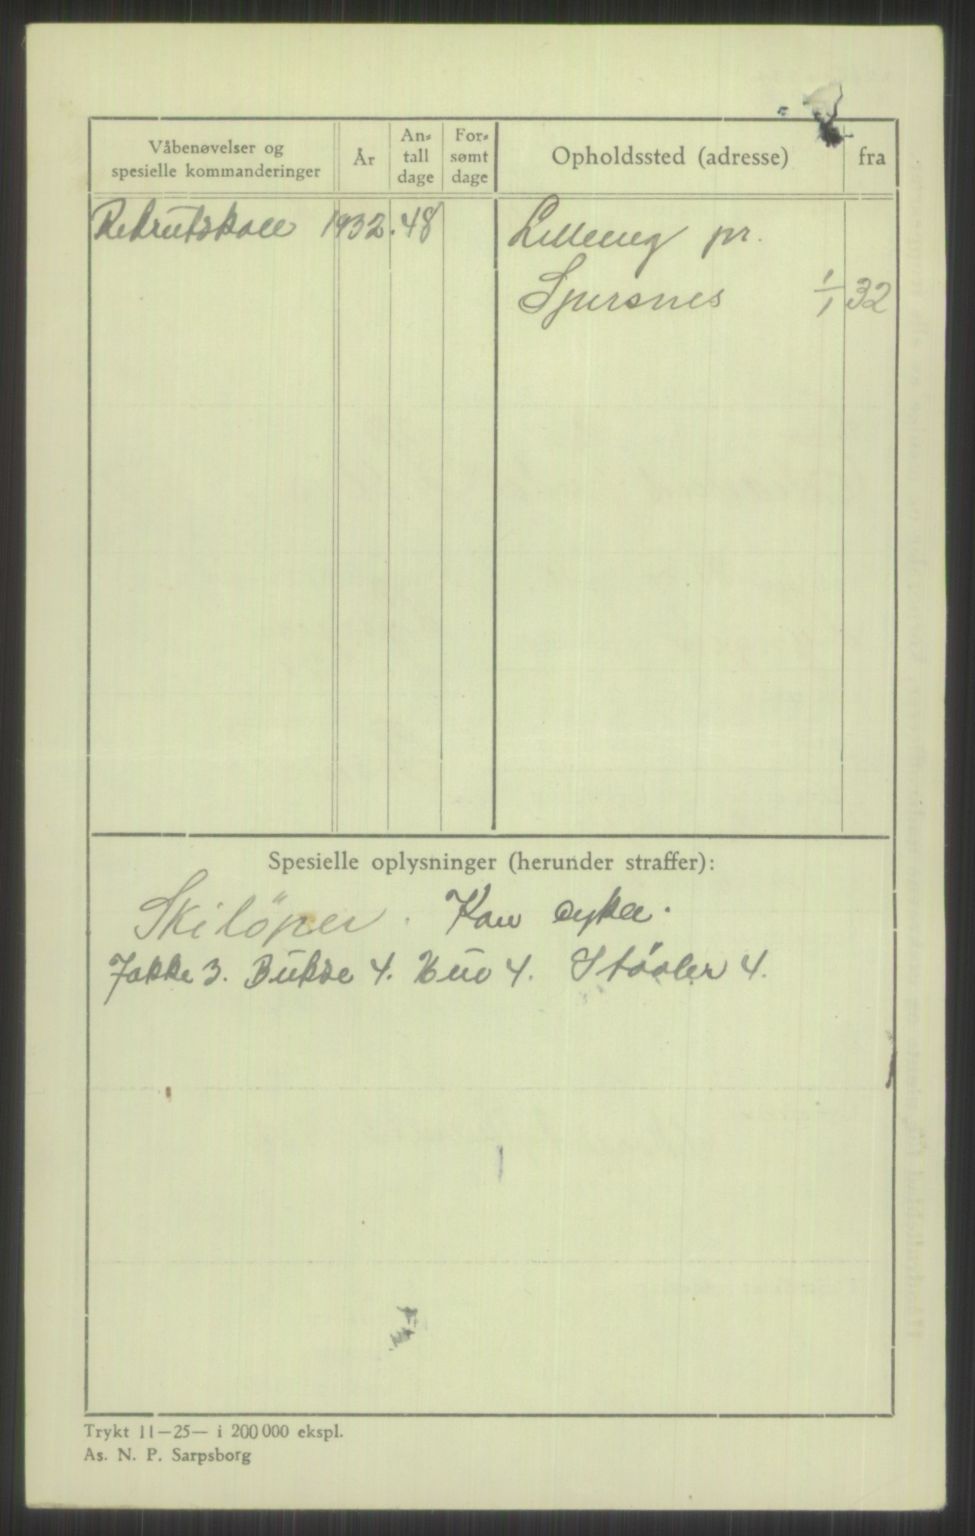 Våbenøvelser og
spesielle kommanderinger
År
An-
tall
dage
For-
sømt
dage
Opholdssted (adresse)
fra
Rekrutskole 1932. 48
pr.
1/1 32
Spesielle oplysninger (herunder straffer):
Skilöper. Kan cykle.
Jakke 3. Bukse 4. Hue 4. Støvler 4.
Trykt 11—25— i 200 000 ekspl.
As. N. P. Sarpsborg